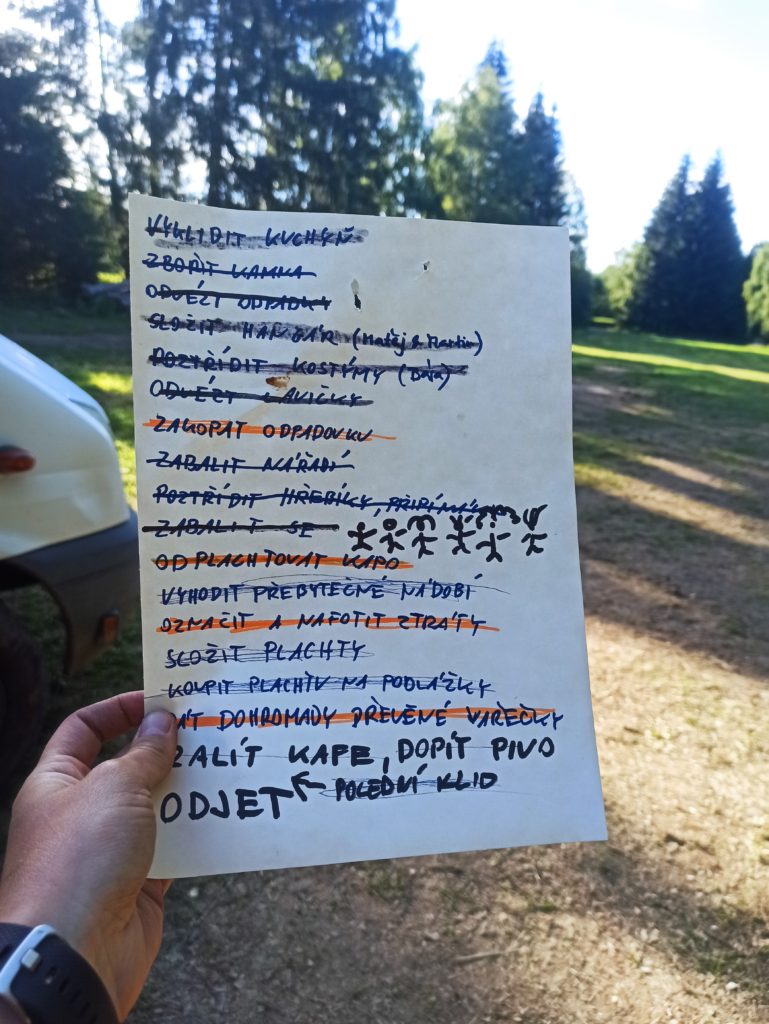 VYKLIDIT KUCHYŇ
ZBOŘIT KAMNA
ODVÉZT ODPADKY
SLOŽIT HANGÁR (Matěj & Martin)
POZTŘÍDIT KOSTÝMY (Dáša)
ODVÉZT LAVIČKY
ZAKOPAT ODPADOVKU
ZABALIT NÁŘADÍ
POZTŘÍDIT HŘEBÍKY,
ZABALIT SE
ODPLACHTOVAT KAPO
VYHODIT PŘEBYTEČNÉ NÁDOBÍ
OZNAČIT A NAFOTIT ZTRÁTY
SLOŽIT PLACHTY
KOUPIT PLACHTU NA PODLÁŽKY
DÁT DOHROMADY DŘEVĚNÉ VAŘEČKY
ZALÍT KAFE, DOPÍT PIVO
ODJET ← POLEDNÍ KLID